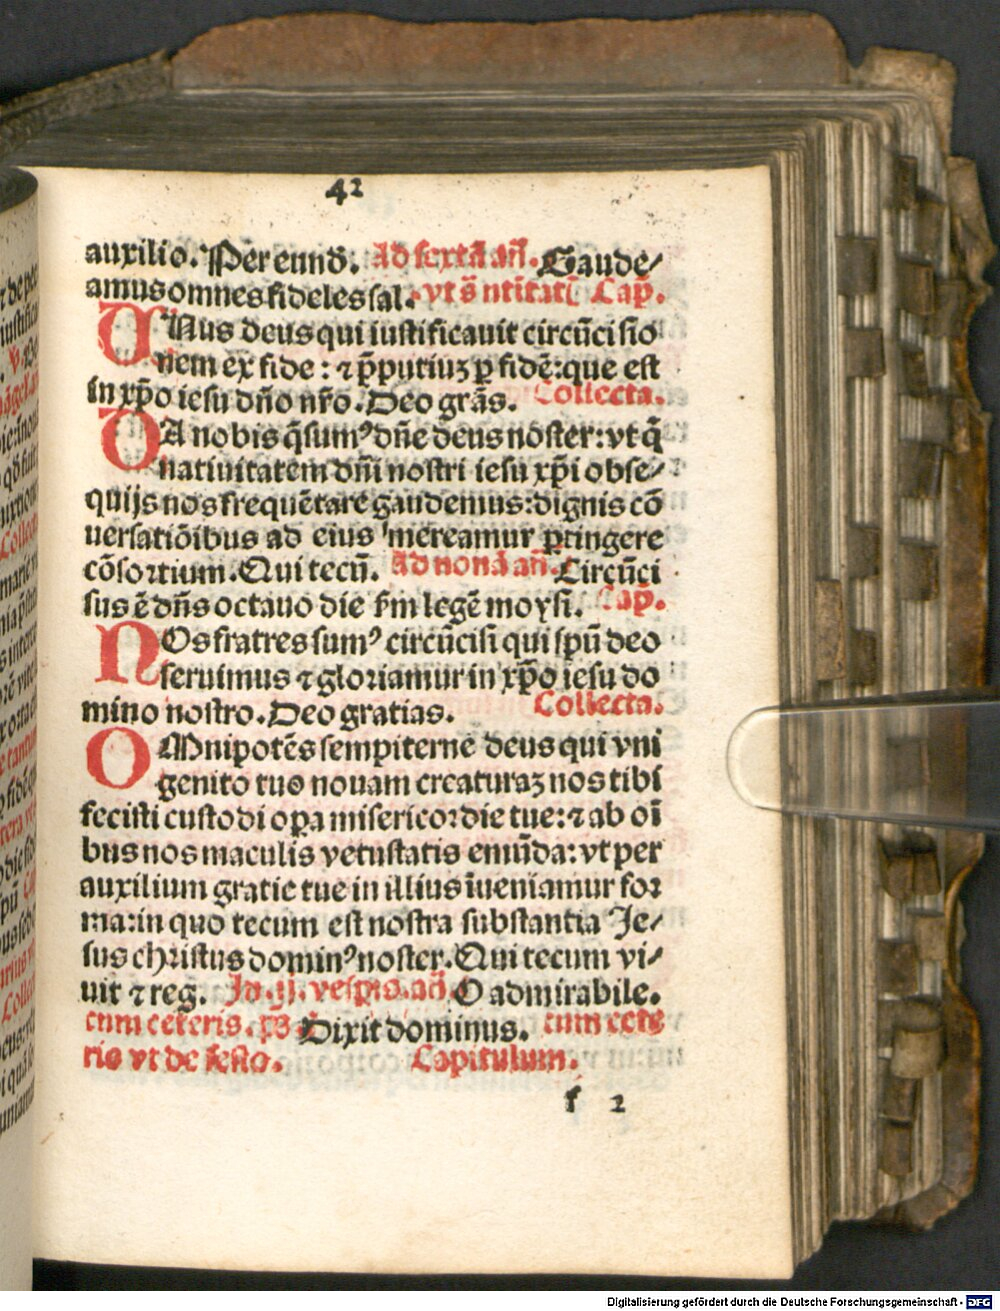 42
auxilio. Per eund̄. Ad sextā añ. Gaude/
amus omnes fideles sal. vt s̄ ntītatī Cap.
UNus deus qui iustificauit circūcisio
nem ex fide: ⁊ p̄putiuꝫ ꝑ fidē: que est
in xp̄o iesu dño nr̄o. Deo grās. Collecta.
DA nobis q̄sumꝰ dn̄e deus noster: vt q̄
natiuitatem dn̄i nostri iesu xp̄i obse/
quijs nos frequētare gaudemus: dignis cō
uersatiōibus ad eius mereamur ꝑtingere
cōsortium. Qui tecū. Ad nonā añ. Circūci
sus ē dn̄s octauo die ẜm legē moysi. Cap.
NOs fratres sumꝰ circūcisi qui spū deo
seruimus ⁊ gloriamur in xp̄o iesu do
mino nostro. Deo gratias. Collecta.
OMnipotēs sempiterne deus qui vni
genito tuo nouam creaturaꝫ nos tibi
fecisti custodi oꝑa misericordie tue: ⁊ ab oī
bus nos maculis vetustatis emūda: vt per
auxilium gratie tue in illius īueniamur for
ma: in quo tecum est nostra substantia Je/
sus christus dominꝰ noster. Qui tecum vi/
uit ⁊ reg. In .ij. vespis. añ. O admirabile.
cum ceteris. ps Dixit dominus. cum cete
ris vt de festo. Capitulum.
f 2
Digitalisierung gefördert durch die Deutsche Forschungsgemeinschaft - DFG